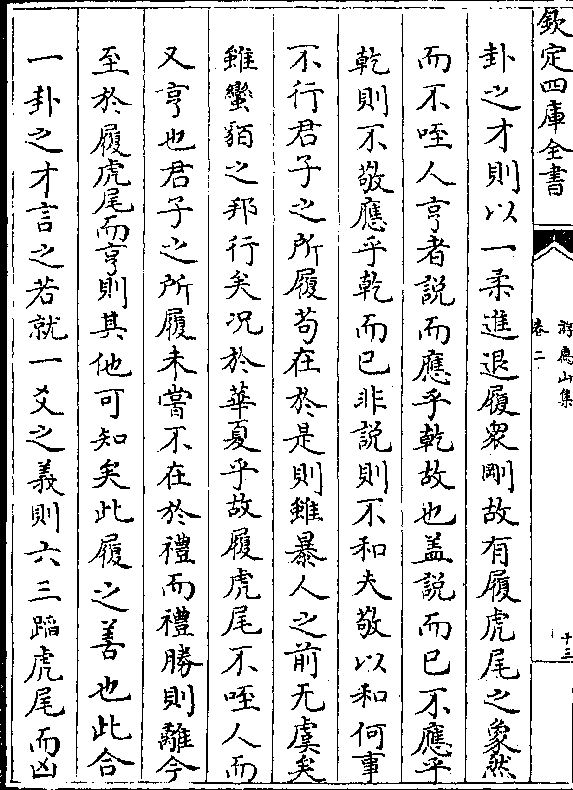 欽定四庫全書
卷二
十三
卦之才則以一柔進退履衆剛故有履虎尾之象然
而不咥人亨者說而應乎乾故也盖說而已不應乎
乾則不敬應乎乾而已非說則不和夫敬以和何事
不行君子之所履苟在於是則雖暴人之前无虞矣
雖蠻貊之邦行矣况於華夏乎故履虎尾不咥人而
又亨也君子之所履未嘗不在於禮而禮勝則離今
至於履虎尾而亨則其他可知矣此履之善也此合
一卦之才言之若就一爻之義則六三蹈虎尾而凶